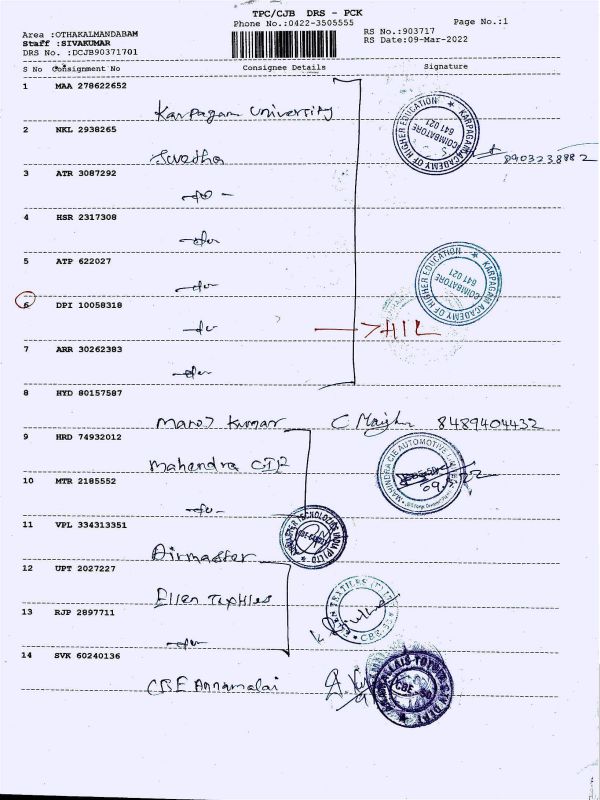 TPC/CJB DRS - PCK
Phone No.:0422-3505555
Page No.:1
Area :OTHAKALMANDABAM
Staff :SIVAKUMAR
DRS No. :DCJB90371701
RS No.:903717
RS Date:09-Mar-2022
S No Consignment No Consignee Details Signature
1 MAA 278622652
Karpagam University
KARPAGAM ACADEMY OF HIGHER EDUCATION
COIMBATORE
641 021
2 NKL 2938265
8903238882
3 ATR 3087292
4 HSR 2317308
5 ATP 622027
KARPAGAM ACADEMY OF HIGHER EDUCATION
COIMBATORE
641 021
6 DPI 10058318
7 ARR 30262383
8 HYD 80157587
Manoj Kumar 8489404432
9 HRD 74932012
Mahendra CIE
MAHINDRA CIE AUTOMOTIVE
10 MTR 2185552
11 VPL 334313351
Airmaster
12 UPT 2027227
Ellen Textiles
13 RJP 2897711
14 SVK 60240136
CBE Annamalai